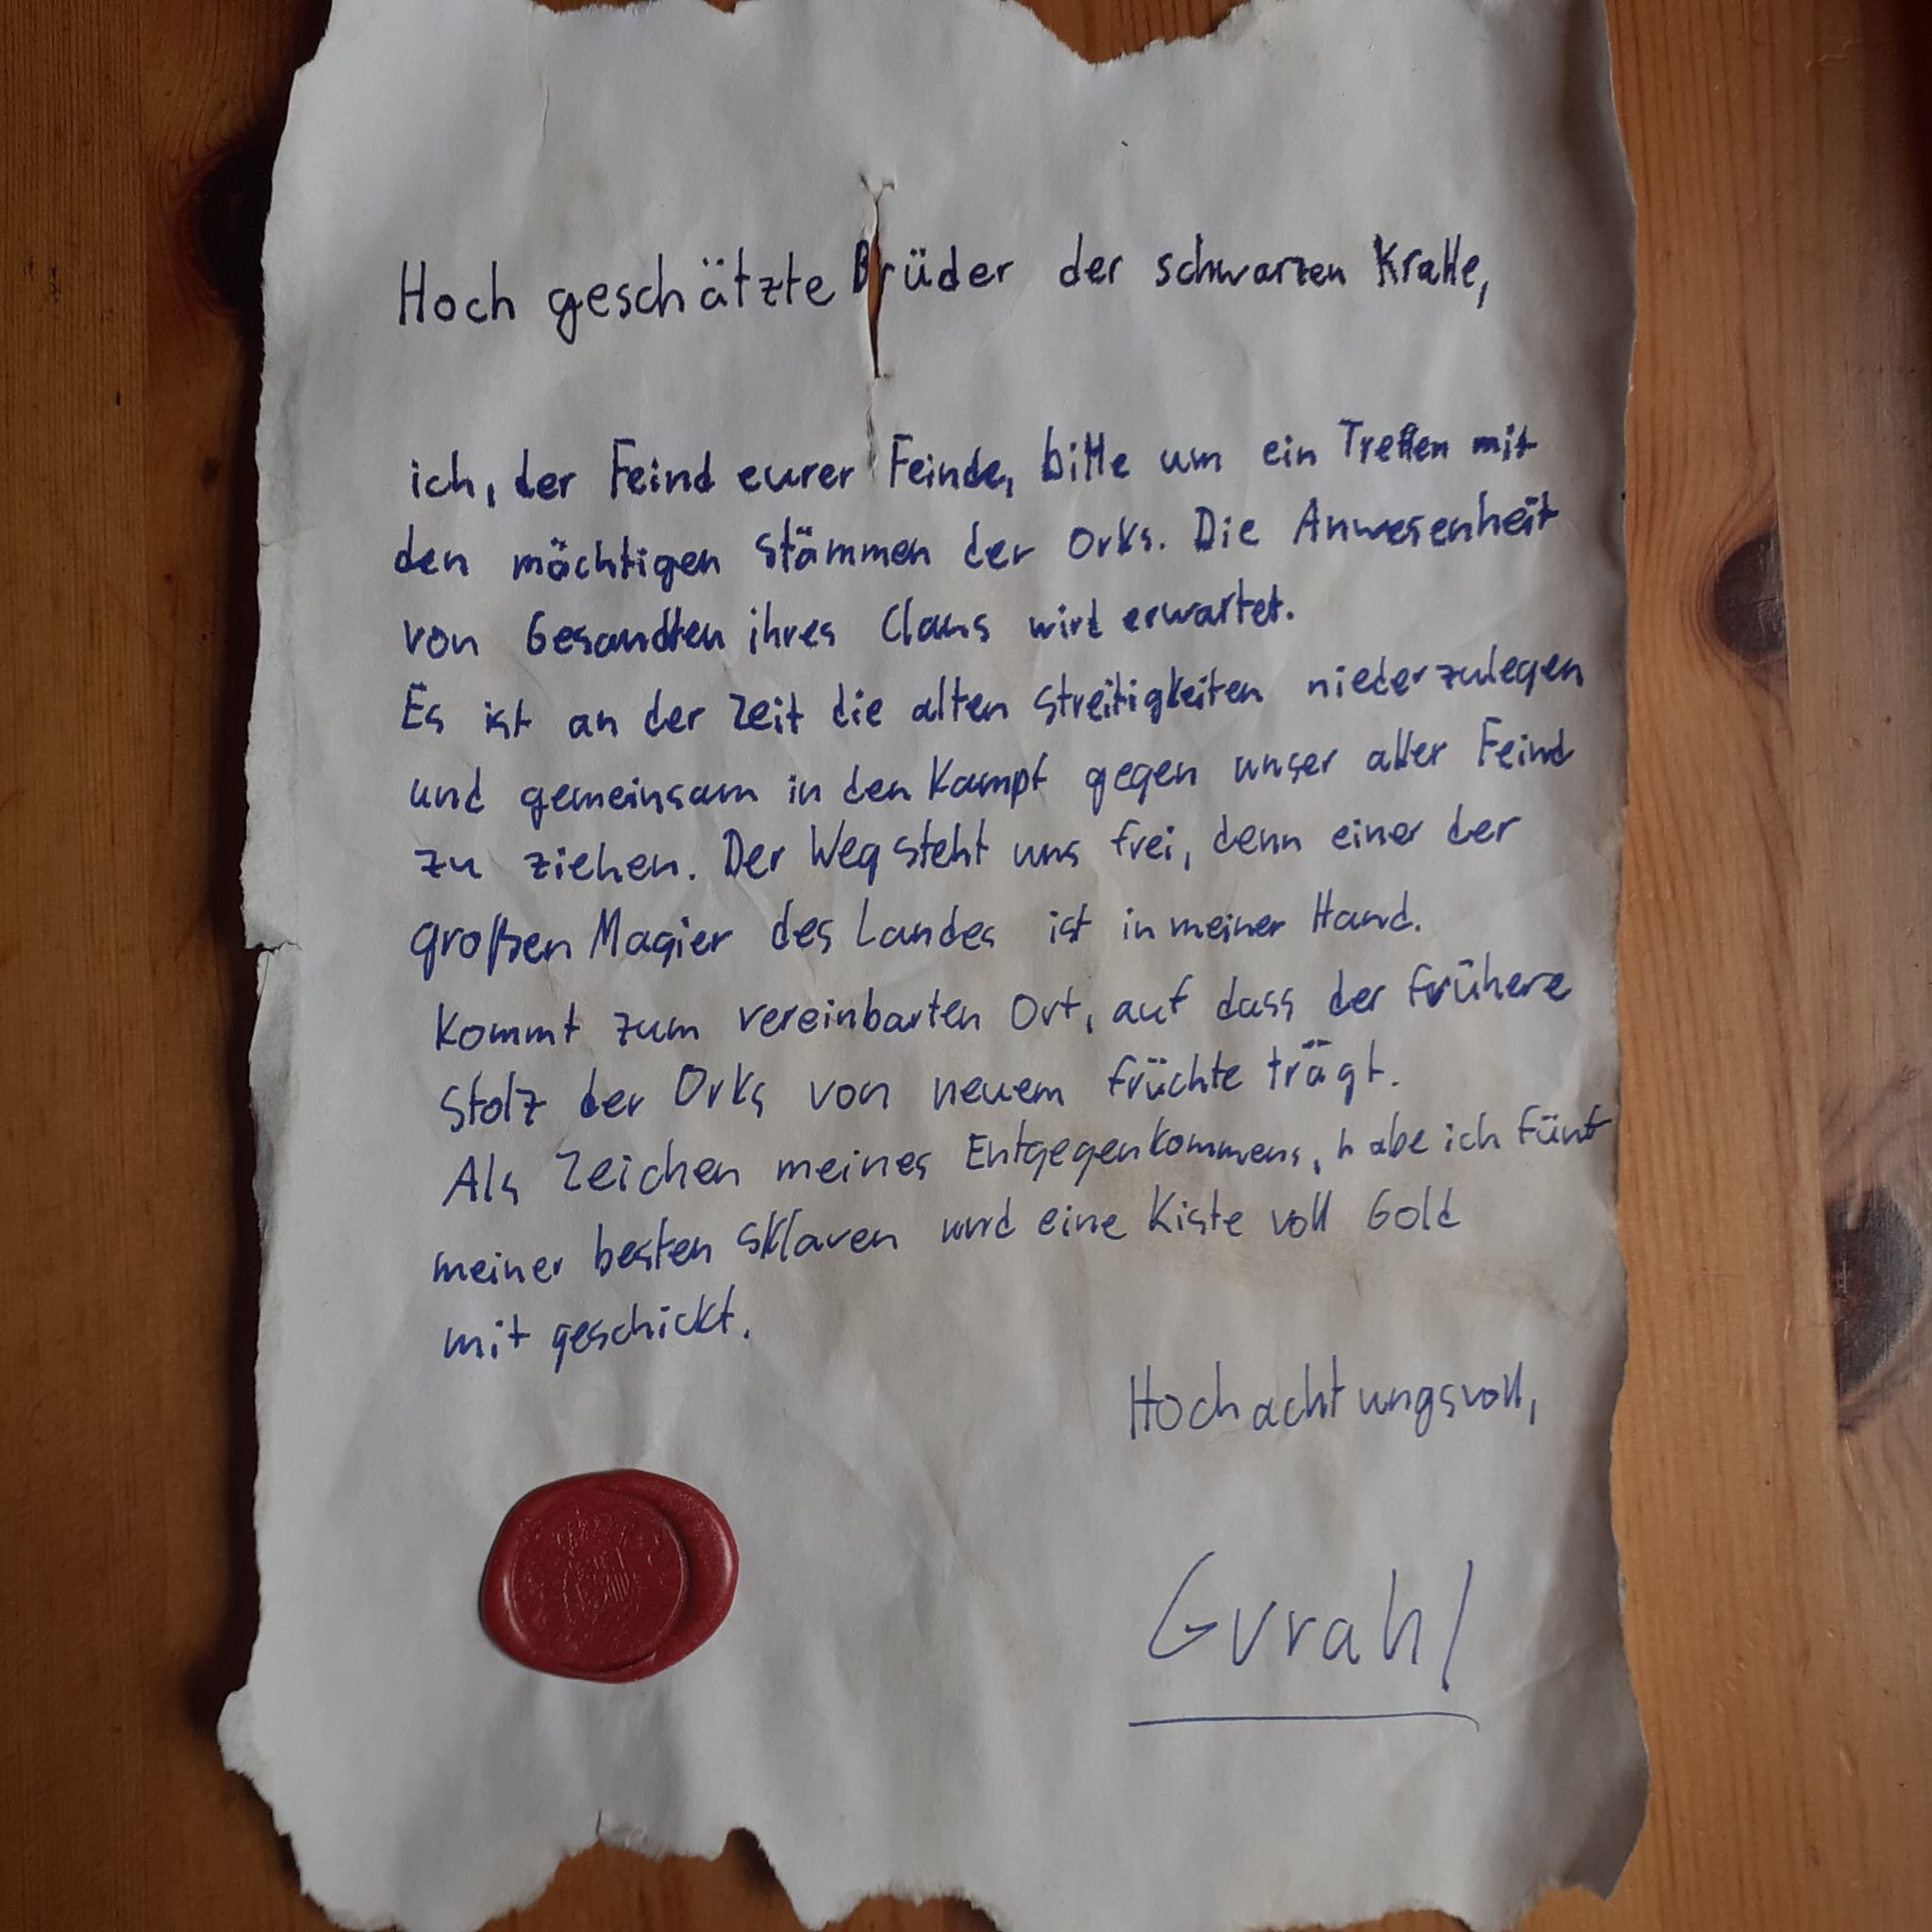 Hoch geschätzte Brüder der schwarzen Kralle,
ich, der Feind eurer Feinde, bitte um ein Treffen mit
den mächtigen Stämmen der Orks. Die Anwesenheit
von Gesandten ihres Clans wird erwartet.
Es ist an der Zeit die alten Streitigkeiten niederzulegen
und gemeinsam in den Kampf gegen unser aller Feind
zu ziehen. Der Weg steht uns frei, denn einer der
großen Magier des Landes ist in meiner Hand.
Kommt zum vereinbarten Ort, auf dass der frühere
Stolz der Orks von neuem früchte trägt.
Als Zeichen meines Entgegenkommens, habe ich fünf
meiner besten Sklaven und eine Kiste voll Gold
mit geschickt.
Hochachtungsvoll,
Gvrahl